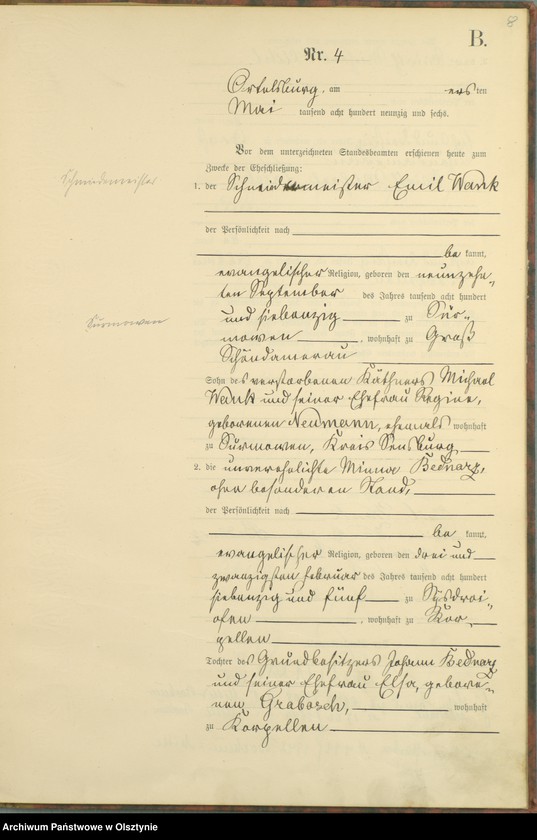 8
B.
Nr. 4
Ortelsburg, am ersten
Mai tausend acht hundert neunzig und sechs.
Vor dem unterzeichneten Standesbeamten erschienen heute zum
Zwecke der Eheschließung:
1. der Schneidermeister Emil Wank
Schmiedemeister
der Persönlichkeit nach
be kannt,
evangelischer Religion, geboren den neunzehn-
ten September des Jahres tausend acht hundert
und siebenzig zu Sur-
Surmowen
mowen, wohnhaft zu Groß
Schöndamerau
Sohn des verstorbenen Käthners Michael
Wank und seiner Ehefrau Regine,
geborenen Neumann, ehemals wohnhaft
zu Surmowen, Kreis Sensburg
2. die unverehelichte Minna Bednarz,
ohne besonderen Stand,
der Persönlichkeit nach
be kannt,
evangelischer Religion, geboren den drei und
zwanzigsten Februar des Jahres tausend acht hundert
siebenzig und fünf zu Sysdroi-
ofen, wohnhaft zu Kor-
pellen
Tochter des Grundbesitzers Johann Bednarz
und seiner Ehefrau Elsa, gebore-
nen Grabosch, wohnhaft
zu Korpellen
Archiwum Państwowe w Olsztynie